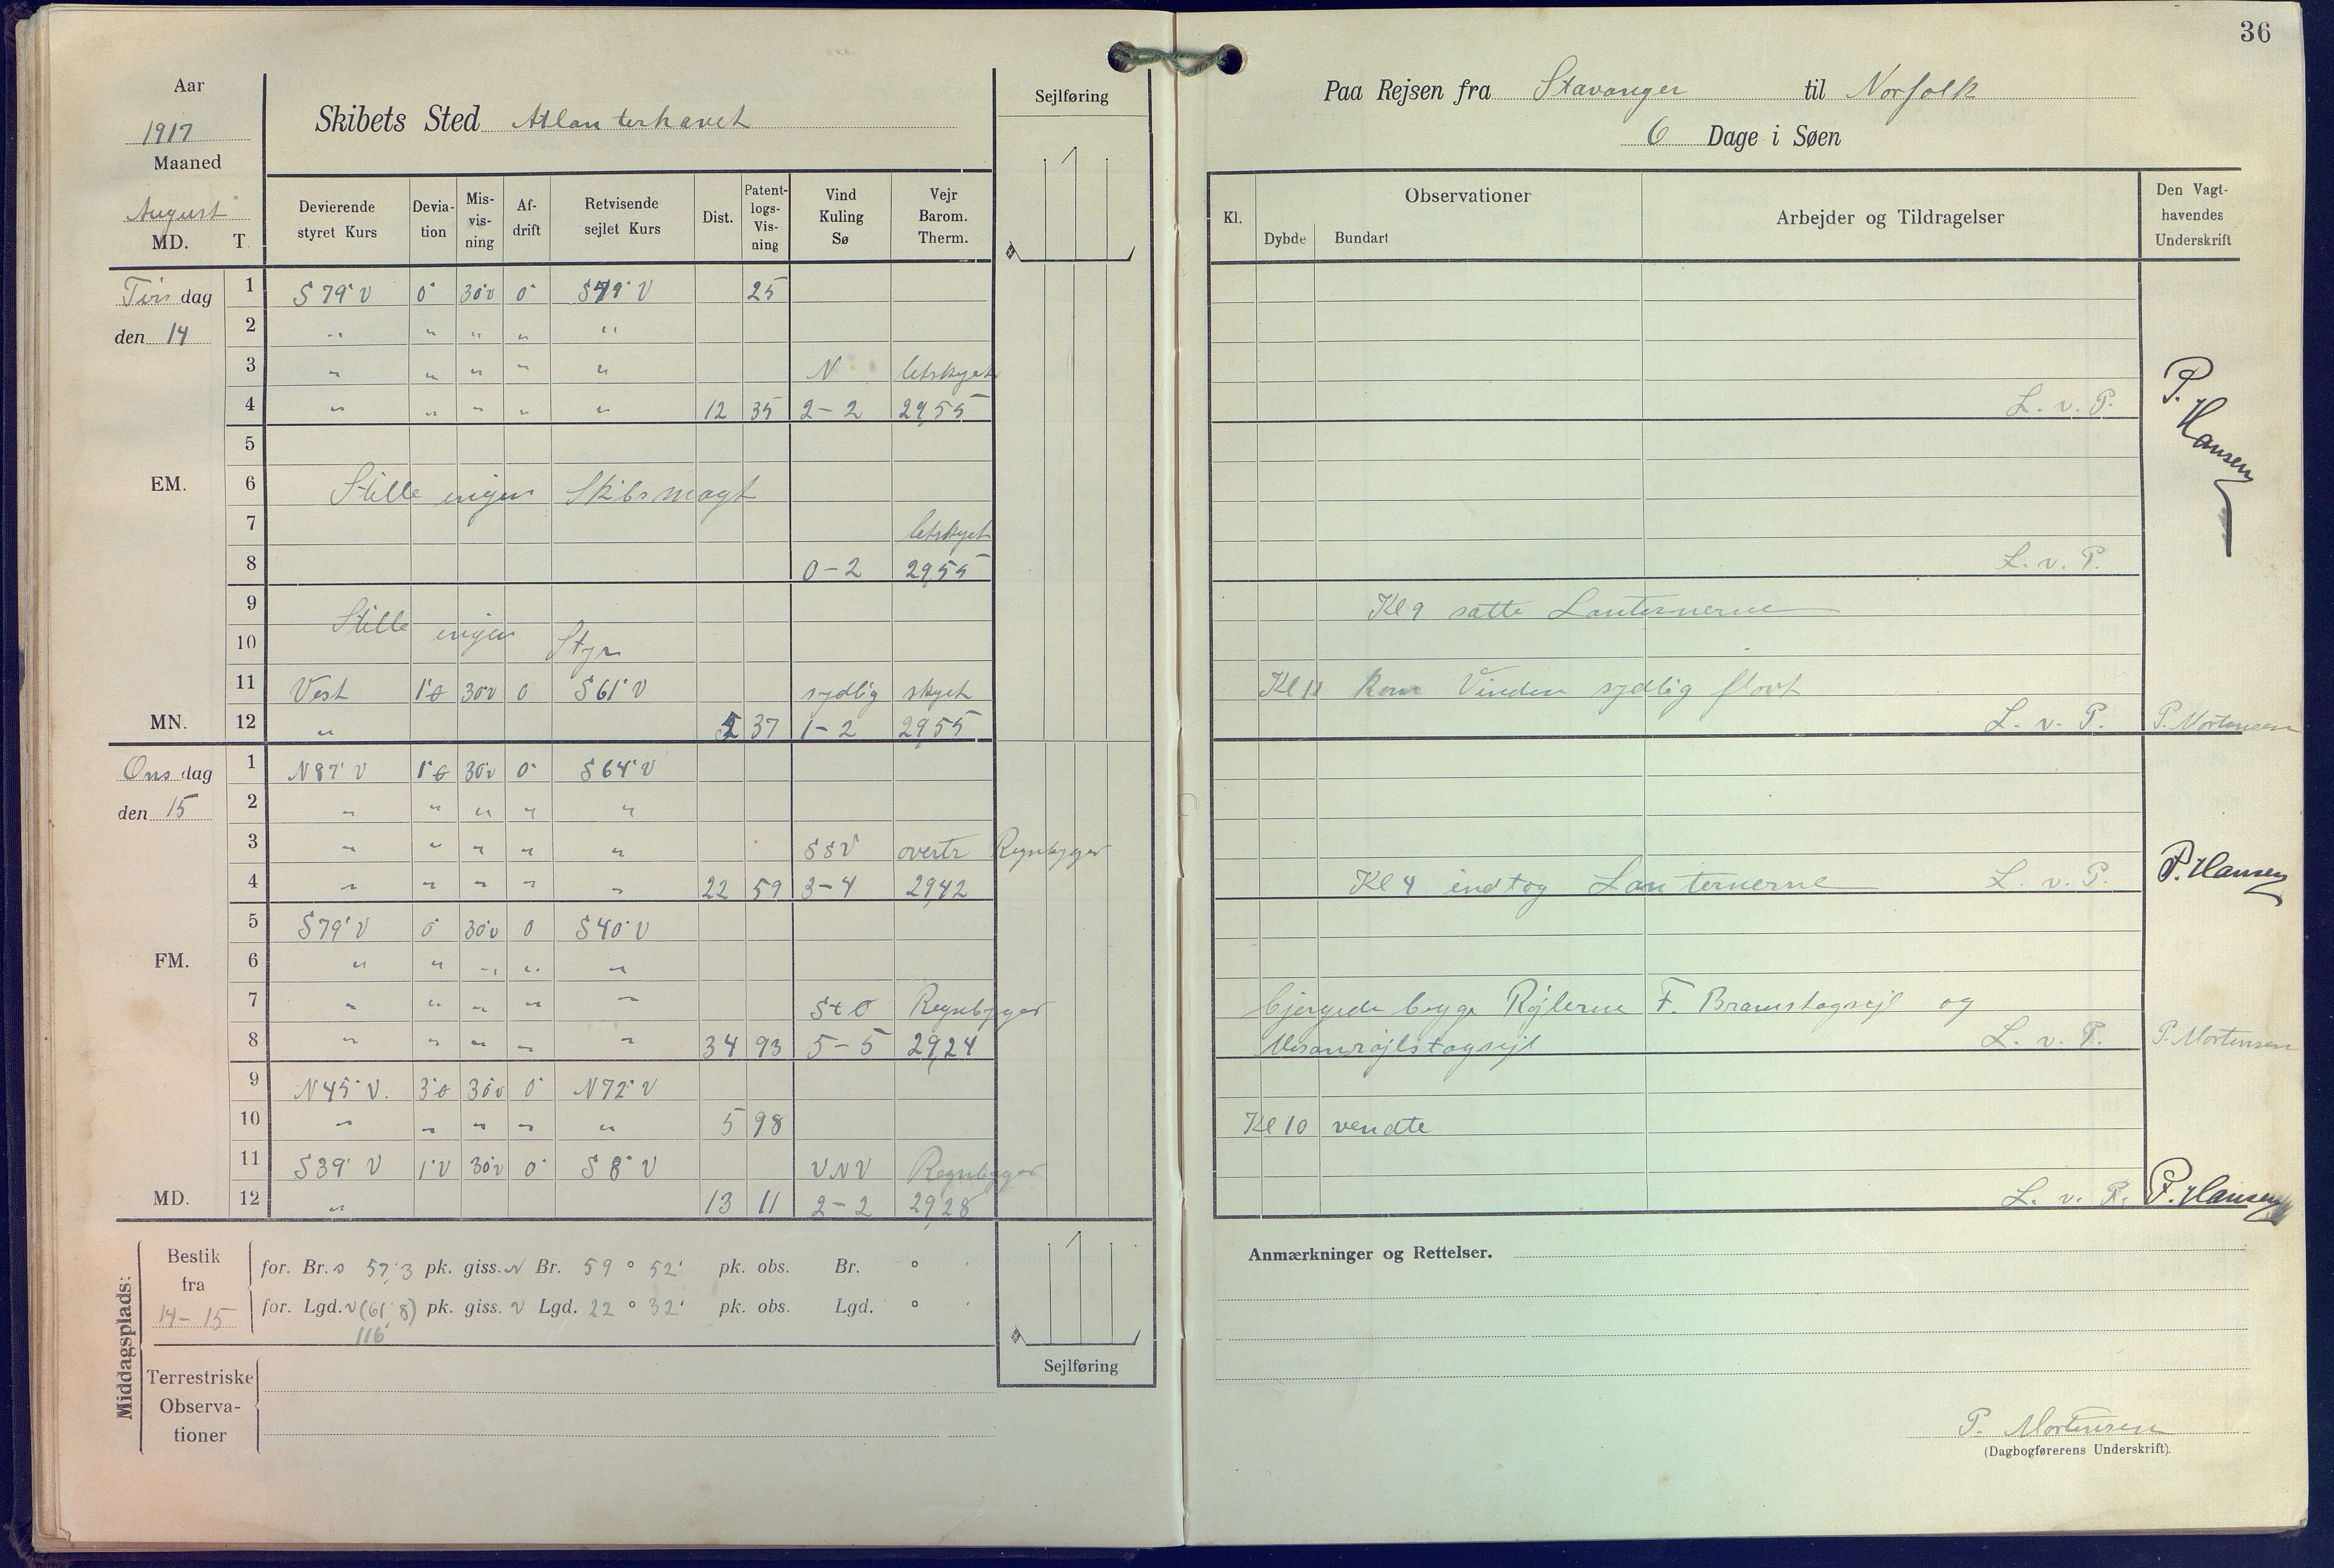 36
Aar
1917
Maaned
August
MD. T.
Skibets Sted Atlanterhavet
Sejlføring
Paa Rejsen fra Stavanger til Norfolk
6 Dage i Søen
Devierende styret Kurs | Devia-tion | Mis-vis-ning | Af-drift | Retvisende sejlet Kurs | Dist. | Patent-logs-Vis-ning | Vind Kuling Sø | Vejr Barom. Therm.
Kl. | Observationer | Dybde | Bundart | Arbejder og Tildragelser | Den Vagt-havendes Underskrift
Tirsdag 1 S 79° V 0° 30°v 0° S 49° V 25
den 14 2 " " " " "
3 " " " " " N letskyet
4 " " " " " 12 35 2-2 29,55 L. v. P. P. Hansen
5
EM. 6 Stille ingen Skibsmagt
7 letskyet
8 0-2 29,55 L. v. P.
9 Kl 9 satte Lanternerne
10 Stille ingen Styr
11 Vest 1°ø 30°v 0 S 61° V sydlig skyet Kl 11 kom Vinden sydlig flovt
MN. 12 " 2 37 1-2 29,55 L. v. P. P. Mortensen
Onsdag 1 N 87° V 1°ø 30°v 0° S 64° V
den 15 2 " " " " "
3 " " " " " SSV overtr Regnbyger
4 " " " " " 22 59 3-4 29,42 Kl 4 indtog Lanternerne L. v. P. P. Hansen
5 S 79° V 0° 30°v 0 S 40° V
FM. 6 " " " " "
7 " " " " " StO Regnbyger bjergede begge Røjlerne F. Bramstagsejl og
8 " " " " " 34 93 5-5 29,24 Mesanrøjlstagsejl L. v. P. P. Mortensen
9 N 45° V. 3°ø 30°v 0° N 72° V
10 " " " " " 5 98 Kl 10 vendte
11 S 39° V 1°V 30°v 0° S 8° V VNV Regnbyger
MD. 12 " 13 11 2-2 29,28 L. v. P. P. Hansen
Middagsplads:
Bestik fra 14-15
for. Br. s 57,3 pk. giss. N Br. 59 ° 52' pk. obs. Br. °
for. Lgd. v (61,8) pk. giss. V Lgd. 22 ° 32' pk. obs. Lgd. °
116'
Terrestriske Observa-tioner
Sejlføring
Anmærkninger og Rettelser.
P. Mortensen
(Dagbogførerens Underskrift).